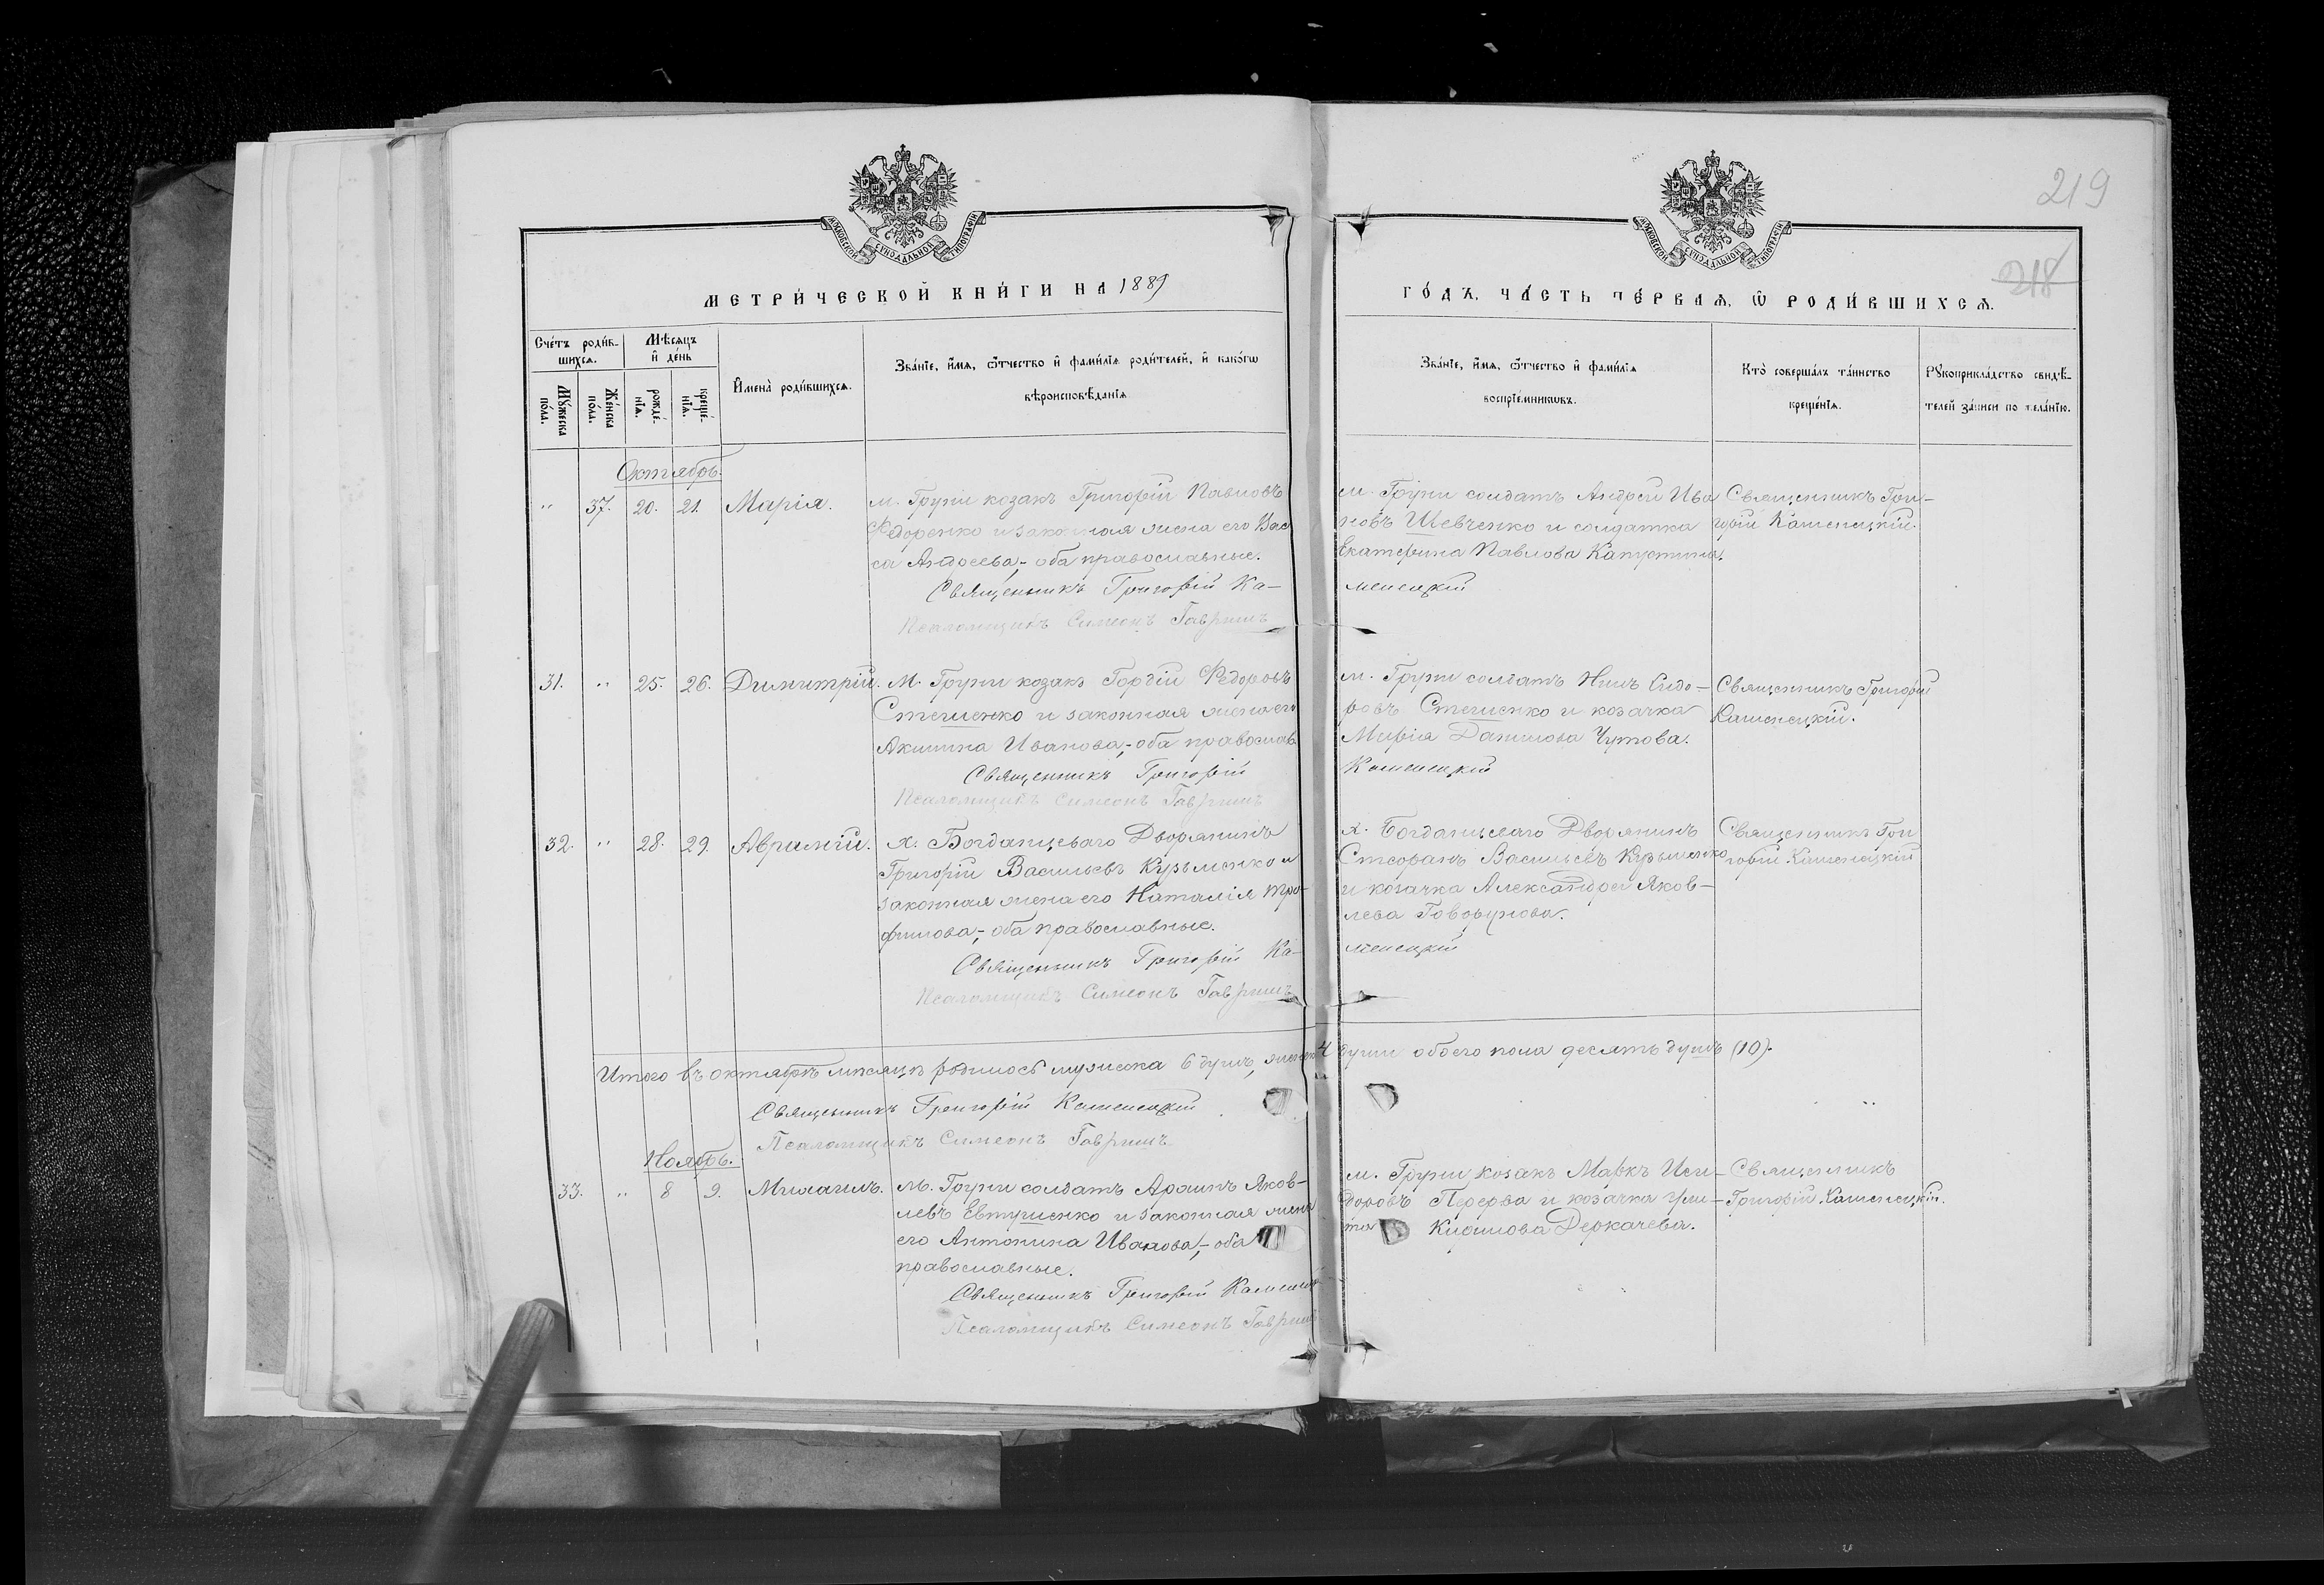 219
218
МОСКОВСКОЙ СѴНОДАЛЬНОЙ ТИПОГРАФІИ
МОСКОВСКОЙ СѴНОДАЛЬНОЙ ТИПОГРАФІИ
МЕТРИ́ЧЕСКОЙ КНИ́ГИ НА 1889
ГО́ДЪ, ЧА́СТЬ ПЕ́РВАѦ, Ѡ҆ РОДИ́ВШИХСѦ.
Сче́тъ роди́в-
шихсѧ.
Мѣ́сѧцъ
и҆ де́нь
Мꙋ́жеска
по́ла.
Же́нска
по́ла.
рожде́-
нїѧ.
креще́-
нїѧ.
И҆мена̀ роди́вшихсѧ.
Зва́нїе, и҆́мѧ, ѻ҆́тчество и҆ фами́лїѧ роди́телей, и҆ како́гѡ
вѣроисповѣ́данїѧ
Зва́нїе, и҆́мѧ, ѻ҆́тчество и҆ фами́лїѧ
воспрїе́мникѡвъ.
Кто̀ соверша́лъ та́инство
креще́нїѧ.
Рꙋкоприкла́дство свидѣ́-
телей за́писи по жела́нїю.
Октябрь.
" 37. 20. 21. Марія.
м. Груни козакъ Григорій Павловъ
Федоренко и законная жена его Вас
са Андреева,- оба православные.
Священникъ Григорій Ка-
Псаломщикъ Симеонъ Гавришъ
м. Груни солдатъ Андрей Ива
новъ Шевченко и солдатка
Екатерина Павлова Капустина.
менецкій
Священникъ Гри-
горій Каменецкій.
31. " 25. 26. Димитрій.
м. Груни козакъ Гордій Федоровъ
Стешенко и законная жена его
Акилина Иванова,- оба православ.
Священникъ Григорій
Псаломщикъ Симеонъ Гавришъ
м. Груни солдатъ Нилъ Сидо-
ровъ Стешенко и козачка
Марія Данилова Чутова.
Каменецкій
Священникъ Григорій
Каменецкій.
32. " 28. 29. Аврамій.
х. Богданцеваго Дворянинъ
Григорій Васильевъ Кузьменко и
законная жена его Наталія Тро-
фимова,- оба православные.
Священникъ Григорій Ка-
Псаломщикъ Симеонъ Гавришъ
х. Богданцеваго Дворянинъ
Стефанъ Васильевъ Кузьменко
и козачка Александра Яков-
лева Говорунова.
менецкій
Священникъ Гри
горій Каменецкій
Итого въ октябрѣ мѣсяцѣ родилось мужеска 6 душъ, женск 4 души обоего пола десять душъ (10).
Священникъ Григорій Каменецкій
Псаломщикъ Симеонъ Гавришъ
Ноябрь.
33. " 8 9. Михаилъ.
м. Груни солдатъ Архипъ Яков-
левъ Евтушенко и законная жена
его Антонина Иванова,- оба
православные.
Священникъ Григорій Каменец
Псаломщикъ Симеонъ Гавришъ
м. Груни козакъ Маркъ Иси-
доровъ Перерва и козачка Ули-
та Деркачева.
Священникъ
Григорій Каменецкій.